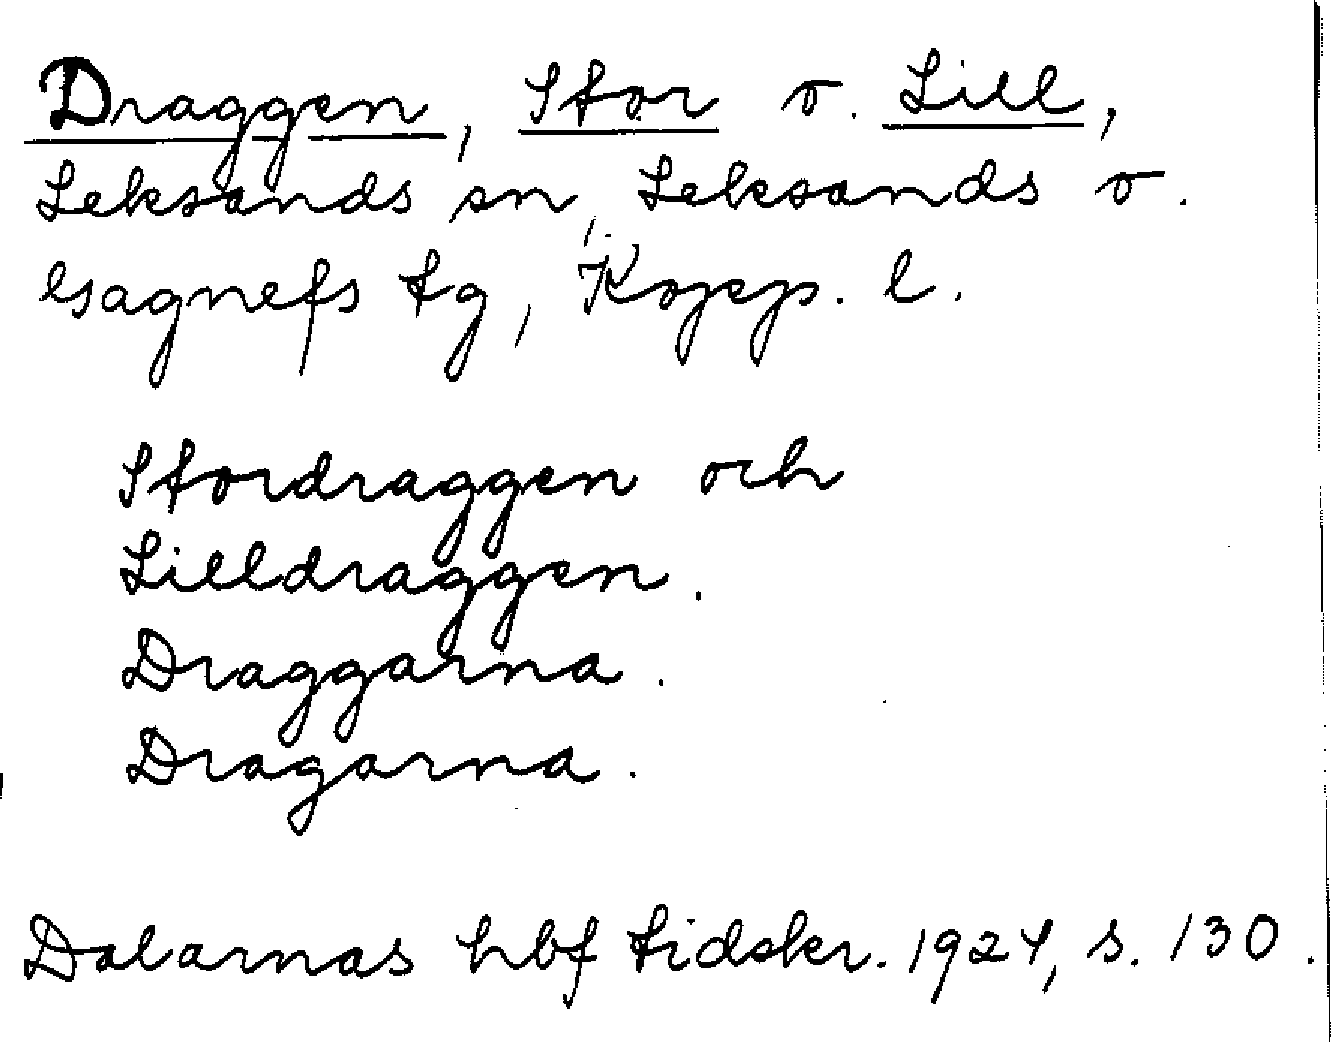 Draggen, Stor o. Lill,
Leksands sn, Leksands o.
Gagnefs tg, Kopp. l.
Stordraggen och
Lilldraggen.
Draggarna.
Dragarna.
Dalarnas hbf tidskr. 1924, s. 130.